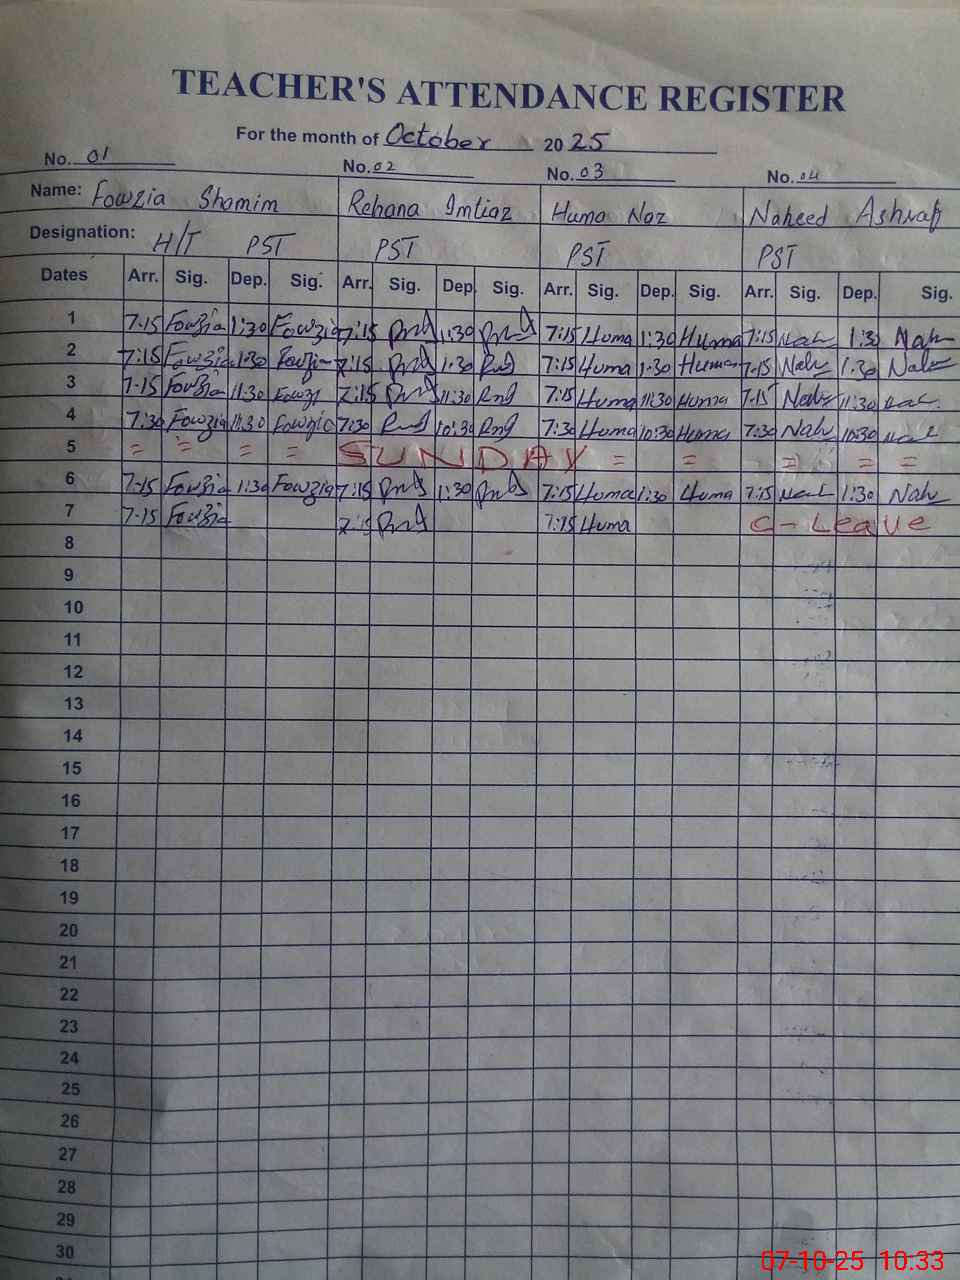 TEACHER'S ATTENDANCE REGISTER
For the month of October 2025
No. 01 No. 02 No. 03 No. 04
Name: Fowzia Shamim Rehana Imtiaz Huma Naz Naheed Ashraf
Designation: H/T PST PST PST PST
Dates Arr. Sig. Dep. Sig. Arr. Sig. Dep. Sig. Arr. Sig. Dep. Sig. Arr. Sig. Dep. Sig.
1 7-15 Fowzia 1:30 Fowzia 7:15 1:30 7:15 Huma 1:30 Huma 7:15 Nah 1:30 Nah
2 7:15 Fowzia 1:30 Fowzia 7:15 1:30 7:15 Huma 1-30 Huma 7-15 Nah 1:30 Nah
3 7-15 Fowzia 11:30 Fowzi 7:15 11:30 7:15 Huma 11:30 Huma 7-15 Nah 11:30 Nah
4 7:30 Fowzia 11:30 Fowzia 7:30 10:30 7:30 Huma 10:30 Huma 7:30 Nah 10:30 Nah
5 = = = = SUNDAY = = = = =
6 7-15 Fowzia 1:30 Fowzia 7:15 1:30 7:15 Huma 1:30 Huma 7:15 Nah 1:30 Nah
7 7-15 Fowzia 7:15 7:15 Huma C-Leave
8
9
10
11
12
13
14
15
16
17
18
19
20
21
22
23
24
25
26
27
28
29
30
07-10-25 10:33